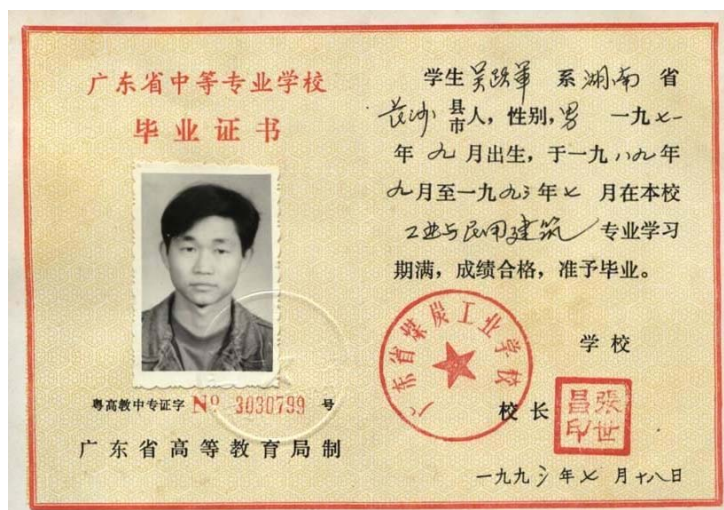 广东省中等专业学校
毕业证书
粤高教中专证字 № 3030799 号
广东省高等教育局制
学生吴跃军 系 湖南 省
长沙 县市人，性别，男 一九七一
年 九 月出生，于一九八九年
九月至一九九三年七 月在本校
工业与民用建筑 专业学习
期满，成绩合格，准予毕业。
广东省煤炭工业学校
学校
校长
張世昌印
一九九三年七月十八日